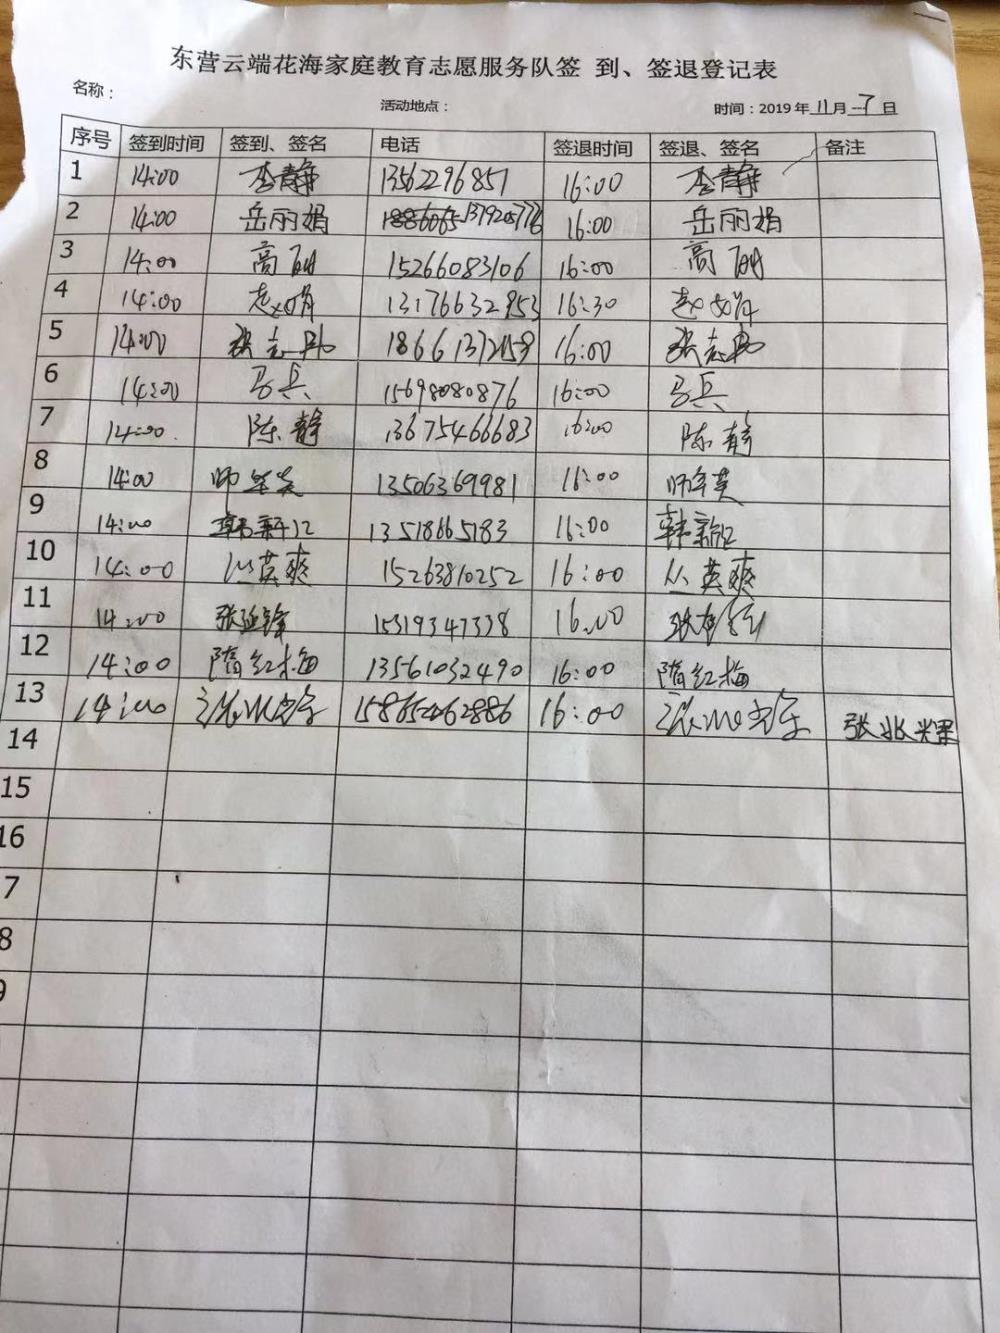 东营云端花海家庭教育志愿服务队签 到、签退登记表
名称： 活动地点： 时间：2019年11月7日
序号 签到时间 签到、签名 电话 签退时间 签退、签名 备注
1 14:00 李静 13562296857 16:00 李静
2 14:00 岳丽娟 16:00 岳丽娟
3 14:00 高丽 15266083106 16:00 高丽
4 14:00 赵娟 13176632953 16:30 赵娟
5 14:00 张志 16:00 张志
6 14:00 马兵 15698080876 16:00 马兵
7 14:00 陈静 13675466683 16:00 陈静
8 14:00 师 英 13506369981 16:00 师 英
9 14:00 韩新江 13518665183 16:00 韩新江
10 14:00 丛英爽 15263810252 16:00 丛英爽
11 14:00 张延锋 15319347338 16:00 张
12 14:00 隋红梅 13561032490 16:00 隋红梅
13 14:00 16:00 张兆耀
14
15
16
7
8
9